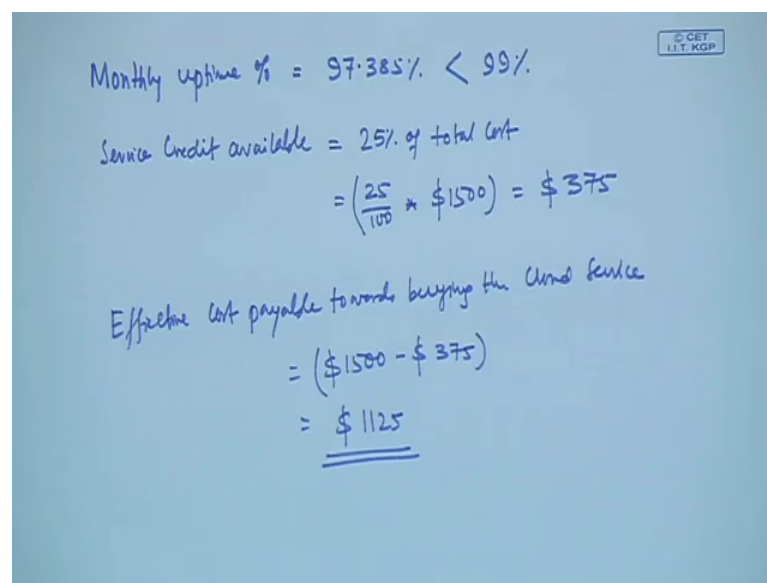 © CET
I.I.T. KGP
Monthly uptime % = 97.385% < 99%.
Service Credit available = 25% of total Cost
= (25/100 * $1500) = $375
Effective cost payable towards buying the Cloud Service
= ($1500 - $375)
= $1125